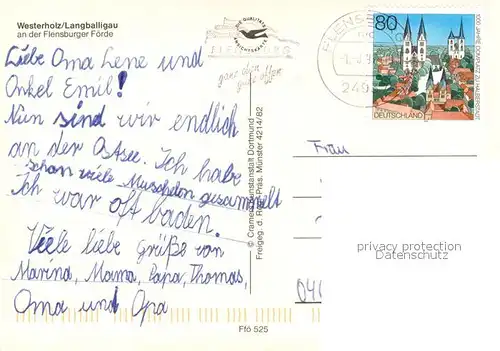 Westerholz/Langballigau
an der Flensburger Förde
Liebe Oma Lene und
Onkel Emil!
Nun sind wir endlich
an der Ostsee. Ich habe
schon viele Muscheln gesammelt
Ich war oft baden.
Viele liebe Grüße von
Marina, Mama, Papa, Thomas,
Oma und Opa
Ffö 525
© Cramers Kunstanstalt Dortmund
Freigeg. d. Reg. Präs. Münster 4214/82
DIE QUALITÄTS
ANSICHTSKARTE
FLENSBURG
FLENSB
24
80
1000 JAHRE DOMPLATZ ZU HALBERSTADT
DEUTSCHLAND
Frau
privacy protection
Datenschutz
04